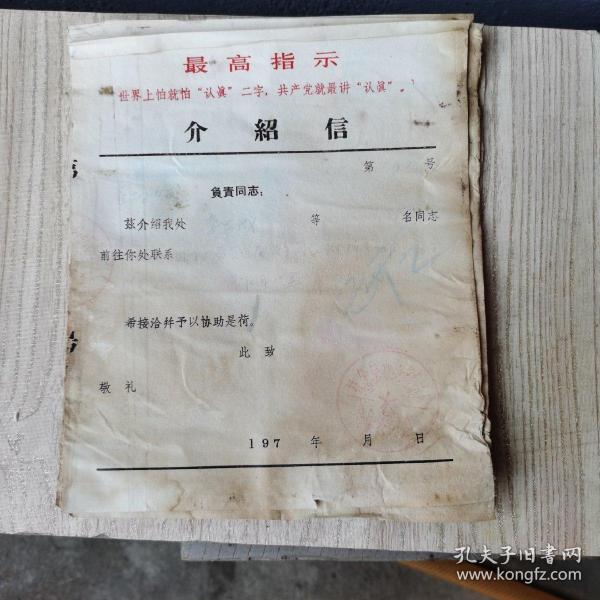 最高指示
世界上怕就怕“认眞”二字，共产党就最讲“认眞”。
介紹信
第 号
負責同志：
茲介绍我处 等 名同志
前往你处联系
希接洽幷予以协助是荷。
此致
敬礼
197 年 月 日
孔夫子旧书网
www.kongfz.com